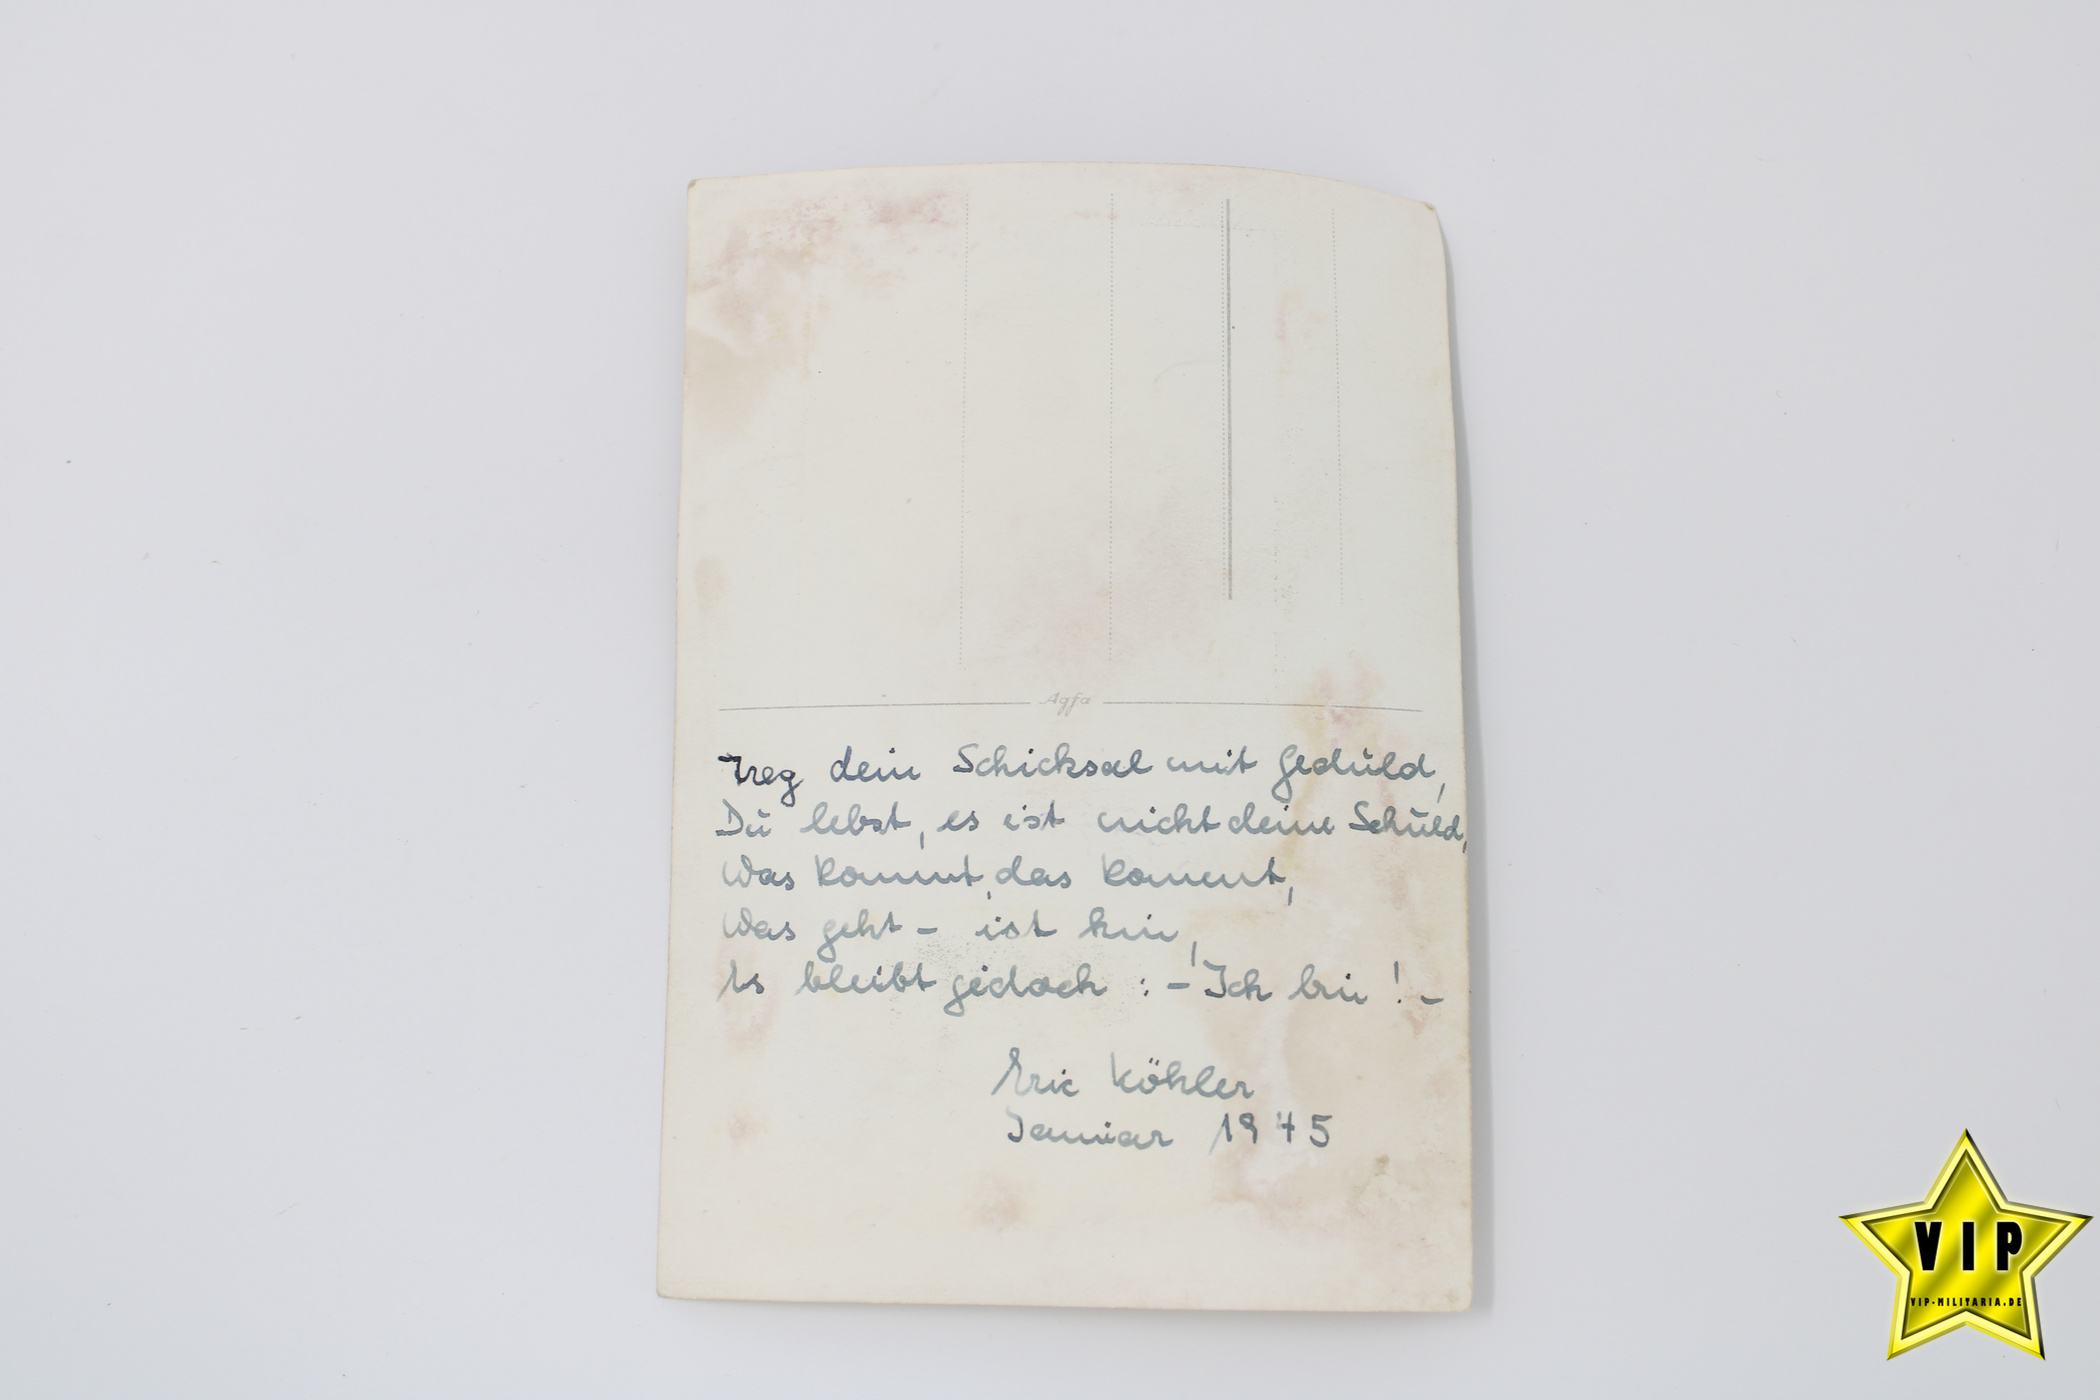 Agfa
Treg dein Schicksal mit Geduld,
Du lebst, es ist nicht deine Schuld,
Was kommt, das kommt,
Was geht – ist hin,
Es bleibt jedoch : – Ich bin ! –
Eric Köhler
Januar 1945
VIP
VIP-MILITARIA.DE